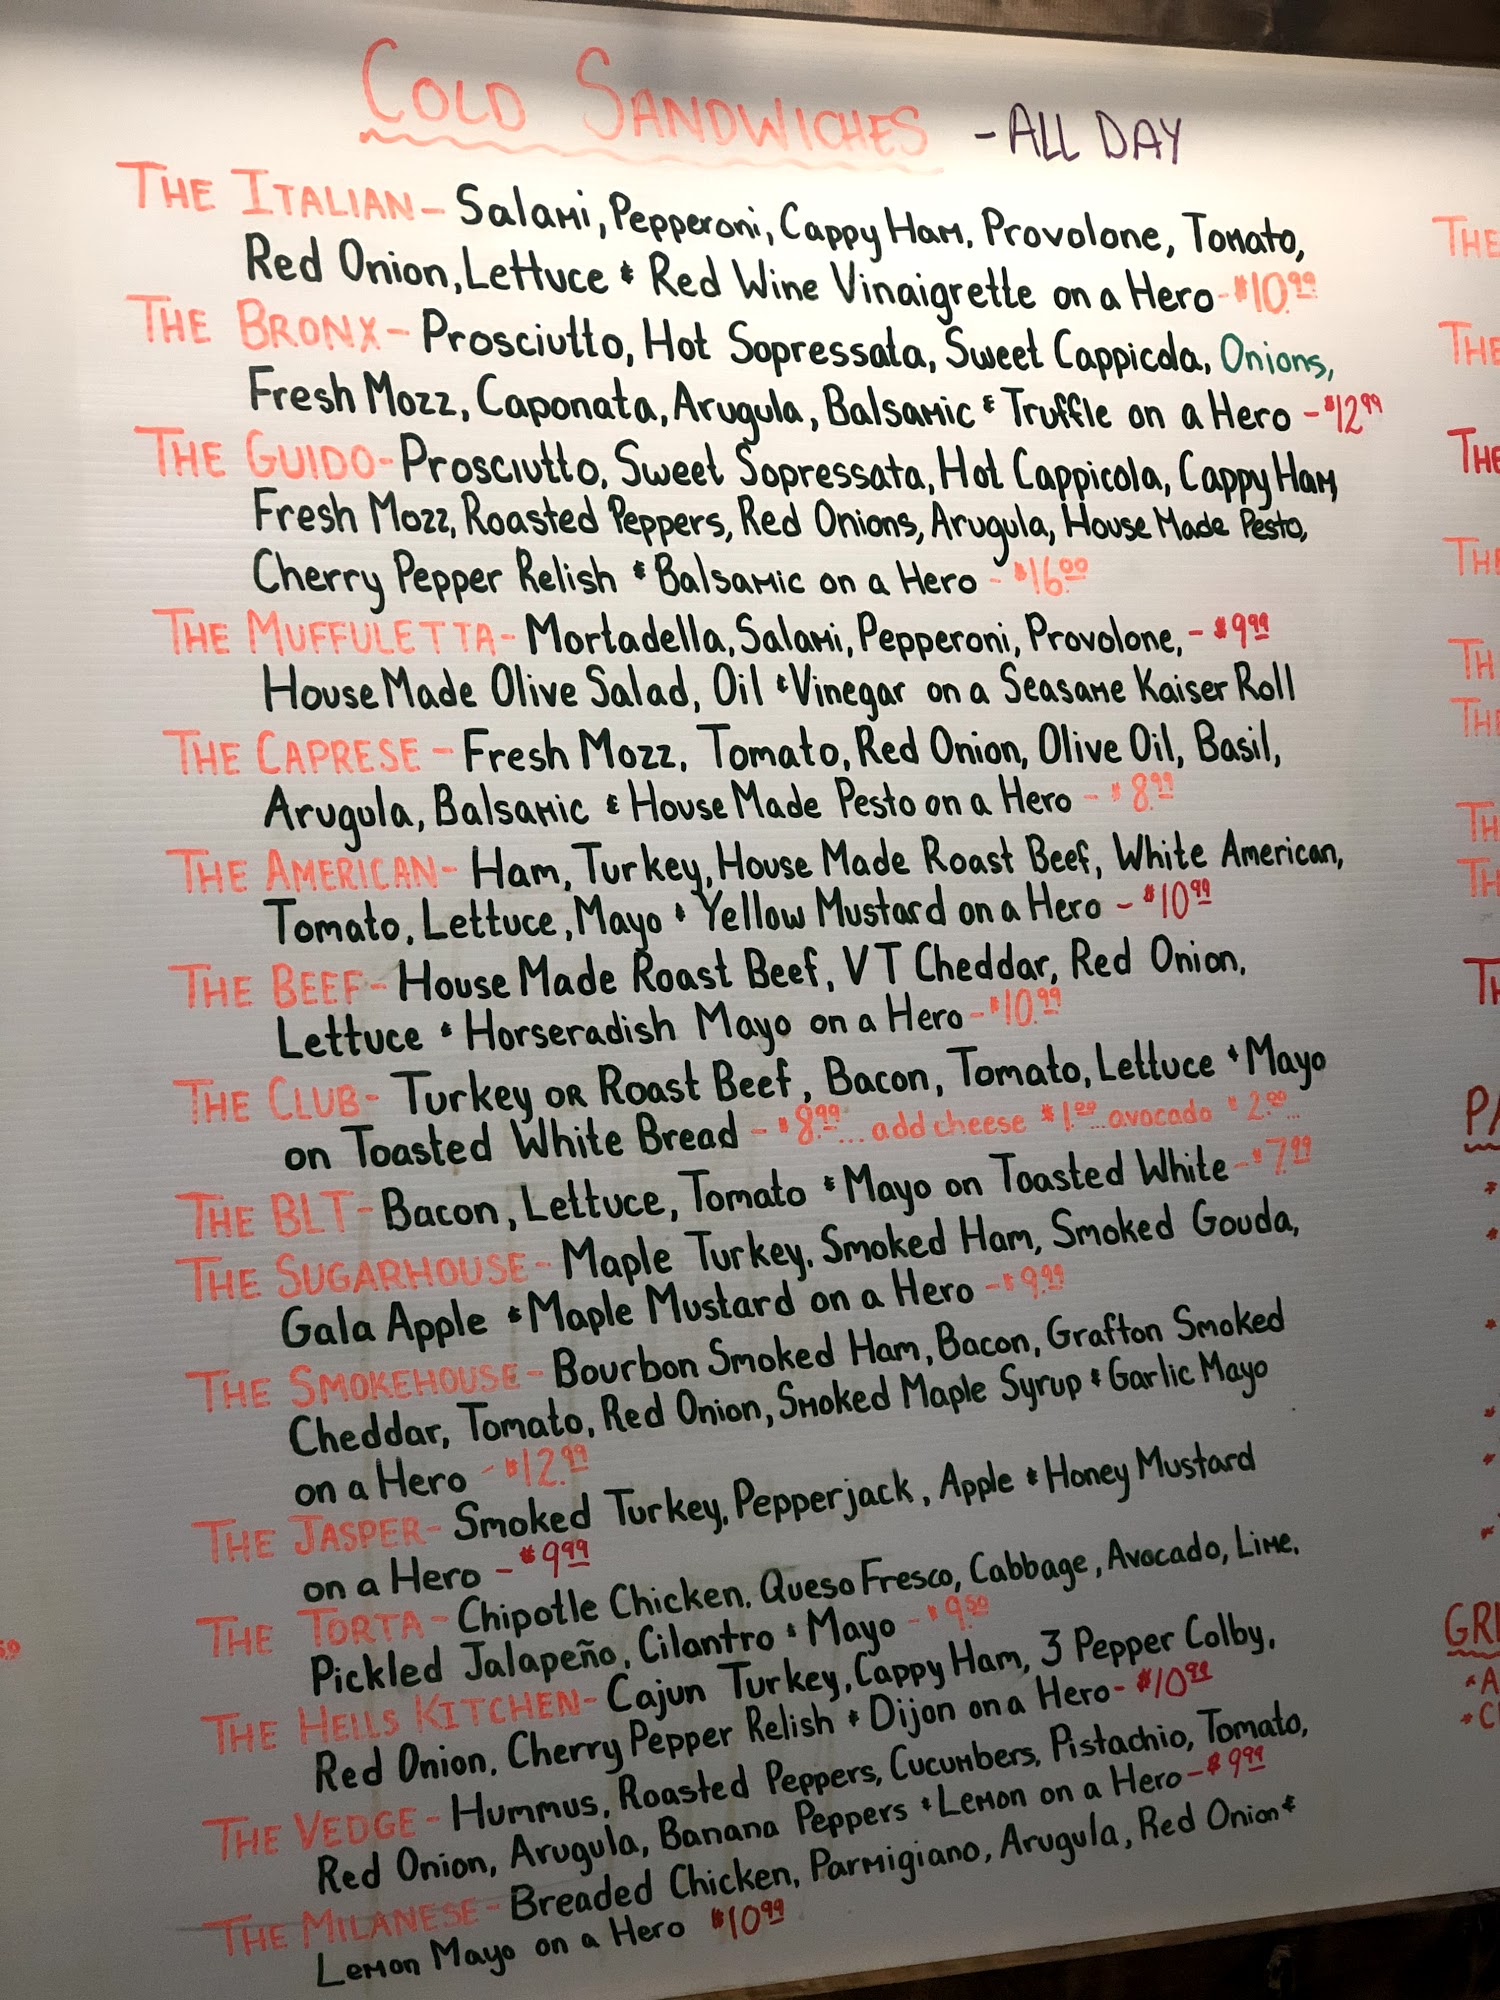 COLD SANDWICHES - ALL DAY
THE ITALIAN - Salami, Pepperoni, Cappy Ham, Provolone, Tomato,
Red Onion, Lettuce & Red Wine Vinaigrette on a Hero - $10.99
THE BRONX - Prosciutto, Hot Sopressata, Sweet Cappicola, Onions,
Fresh Mozz, Caponata, Arugula, Balsamic & Truffle on a Hero - $12.99
THE GUIDO - Prosciutto, Sweet Sopressata, Hot Cappicola, Cappy Ham,
Fresh Mozz, Roasted Peppers, Red Onions, Arugula, House Made Pesto,
Cherry Pepper Relish & Balsamic on a Hero - $16.00
THE MUFFULETTA - Mortadella, Salami, Pepperoni, Provolone, - $9.99
House Made Olive Salad, Oil & Vinegar on a Seasame Kaiser Roll
THE CAPRESE - Fresh Mozz, Tomato, Red Onion, Olive Oil, Basil,
Arugula, Balsamic & House Made Pesto on a Hero - $8.99
THE AMERICAN - Ham, Turkey, House Made Roast Beef, White American,
Tomato, Lettuce, Mayo & Yellow Mustard on a Hero - $10.99
THE BEEF - House Made Roast Beef, VT Cheddar, Red Onion,
Lettuce & Horseradish Mayo on a Hero - $10.99
THE CLUB - Turkey or Roast Beef, Bacon, Tomato, Lettuce & Mayo
on Toasted White Bread - $8.99... add cheese $1.00...avocado $2.00...
THE BLT - Bacon, Lettuce, Tomato & Mayo on Toasted White - $7.99
THE SUGARHOUSE - Maple Turkey, Smoked Ham, Smoked Gouda,
Gala Apple & Maple Mustard on a Hero - $9.99
THE SMOKEHOUSE - Bourbon Smoked Ham, Bacon, Grafton Smoked
Cheddar, Tomato, Red Onion, Smoked Maple Syrup & Garlic Mayo
on a Hero - $12.99
THE JASPER - Smoked Turkey, Pepperjack, Apple & Honey Mustard
on a Hero - $9.99
THE TORTA - Chipotle Chicken, Queso Fresco, Cabbage, Avocado, Lime,
Pickled Jalapeño, Cilantro & Mayo - $9.50
THE HELLS KITCHEN - Cajun Turkey, Cappy Ham, 3 Pepper Colby,
Red Onion, Cherry Pepper Relish & Dijon on a Hero - $10.99
THE VEDGE - Hummus, Roasted Peppers, Cucumbers, Pistachio, Tomato,
Red Onion, Arugula, Banana Peppers & Lemon on a Hero - $9.99
THE MILANESE - Breaded Chicken, Parmigiano, Arugula, Red Onion &
Lemon Mayo on a Hero $10.99